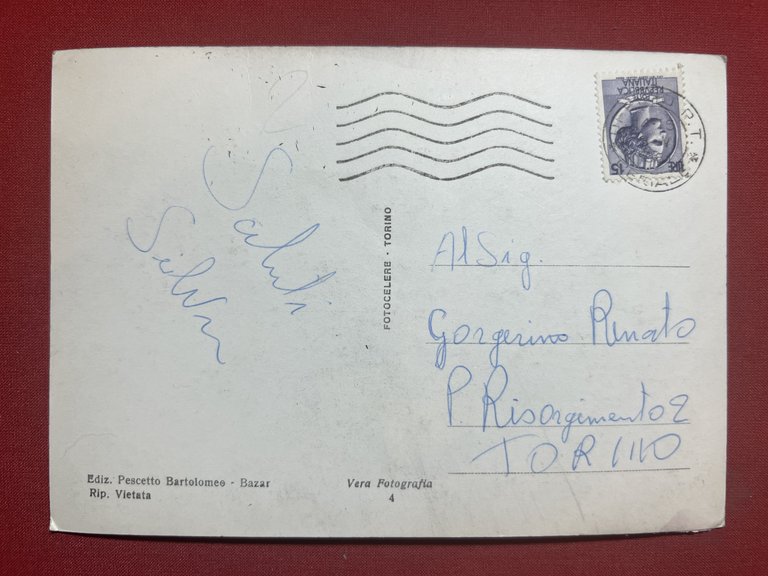 Saluti
Silva
POSTE
REPUBBLICA
ITALIANA
L. 15
FOTOCELERE - TORINO
Al Sig.
Gorgerino Renato
P. Risorgimento 2
TORINO
Ediz. Pescetto Bartolomeo - Bazar
Rip. Vietata
Vera Fotografia
4